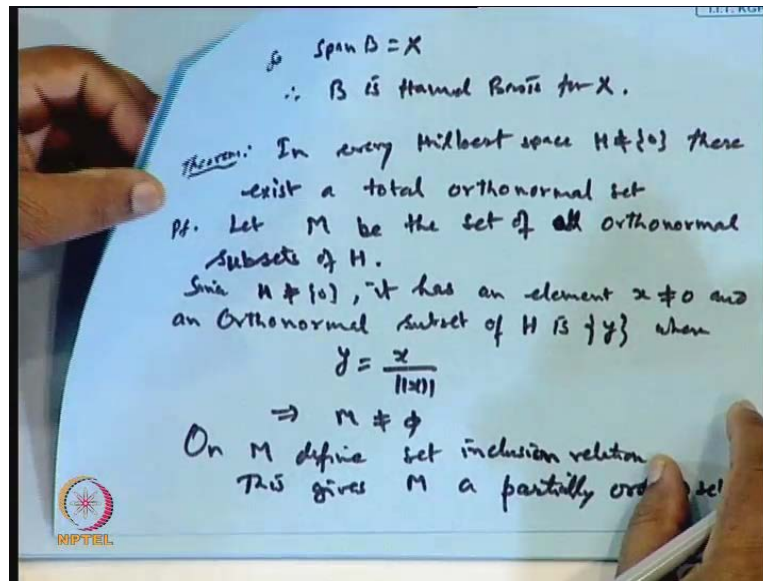 I.I.T. KGP
So span B = X
∴ B is Hamel Basis for X.
Theorem: In every Hilbert space H ≠ {0} there
exist a total orthonormal set
Pf. Let M be the set of all orthonormal
subsets of H.
Since H ≠ {0}, it has an element x ≠ 0 and
an Orthonormal subset of H is {y} where
y = x / ||x||
⇒ M ≠ φ
On M define set inclusion relation
This gives M a partially set
NPTEL